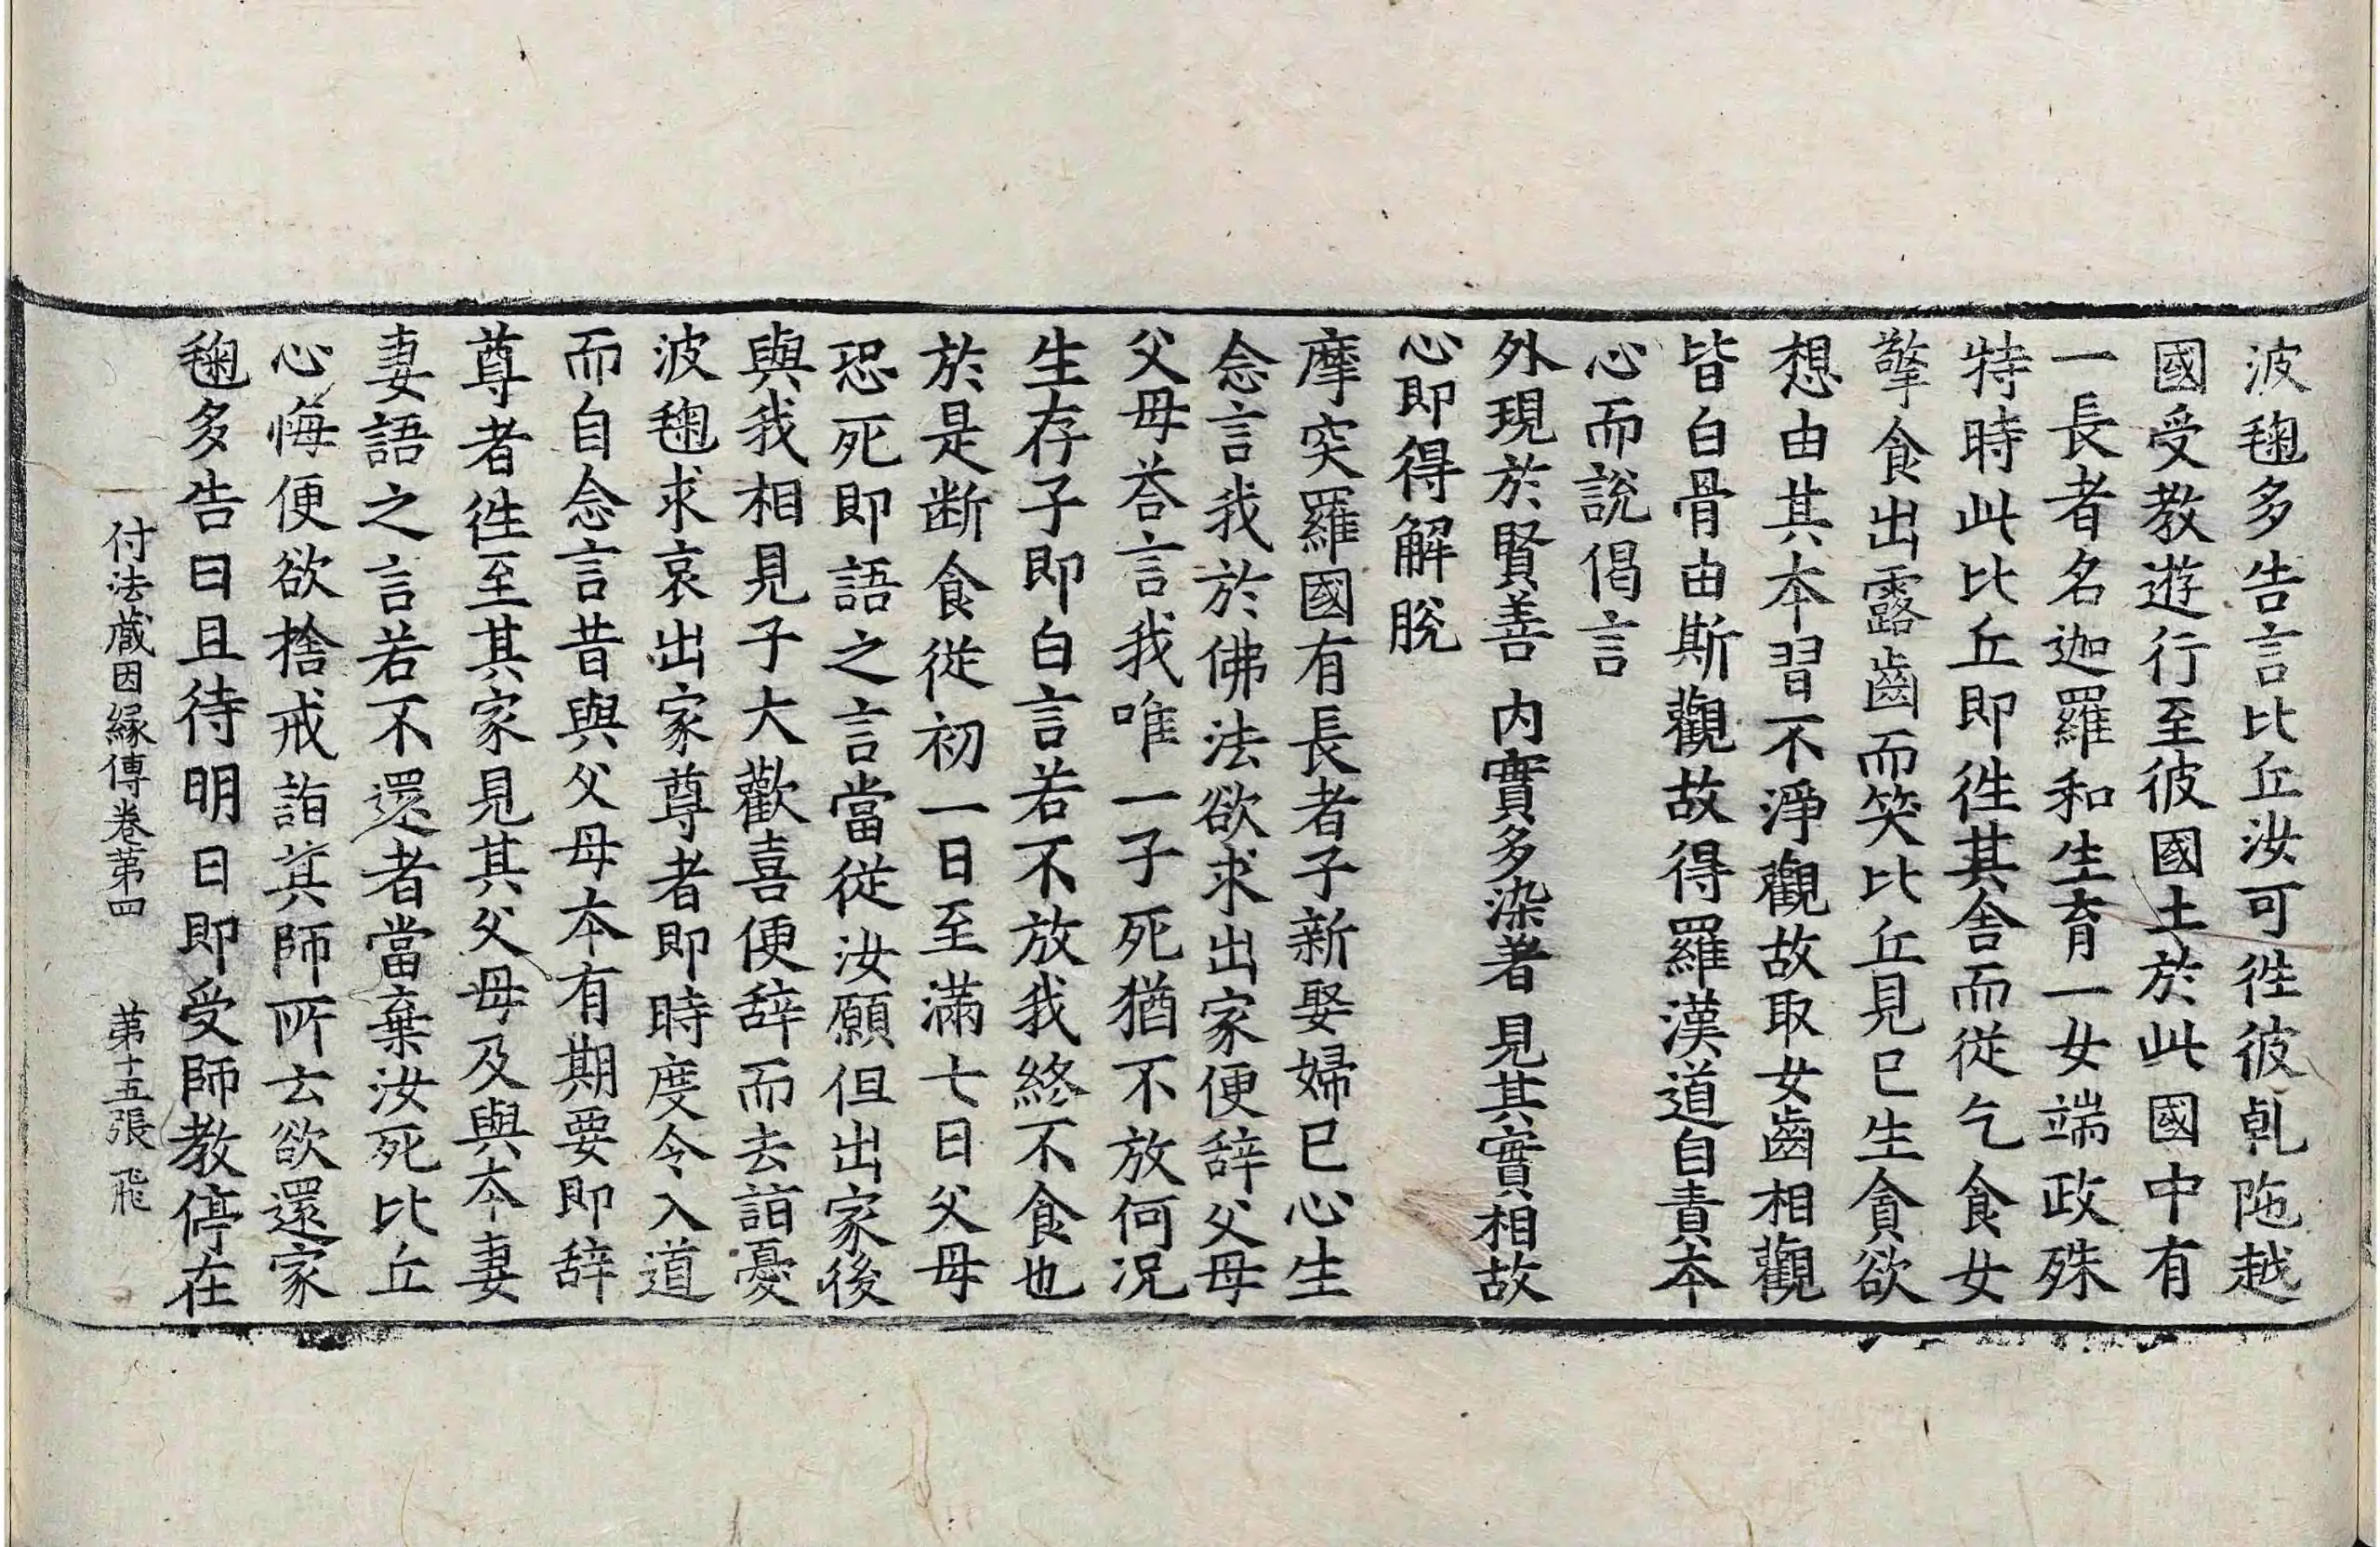 波毱多告言比丘汝可徃彼乹陁越
國受教遊行至彼國土於此國中有
一長者名迦羅和生育一女端政殊
特時此比丘即徃其舍而從乞食女
擎食出露齒而笑比丘見已生貪欲
想由其夲習不淨觀故取女齒相觀
皆白骨由斯觀故得羅漢道自責夲
心而說偈言
外現於賢善 内實多染著 見其實相故
心即得解脫
摩突羅國有長者子新娶婦已心生
念言我於佛法欲求出家便辞父母
父母荅言我唯一子死猶不放何况
生存子即白言若不放我終不食也
於是断食從初一日至滿七日父母
恐死即語之言當從汝願但出家後
與我相見子大歡喜便辞而去詣憂
波毱求哀出家尊者即時度令入道
而自念言昔與父母夲有期要即辞
尊者徃至其家見其父母及與夲妻
妻語之言若不還者當棄汝死比丘
心悔便欲捨戒詣其師所云欲還家
毱多告曰且待明日即受師教停在
付法藏因縁傳卷第四 第十五張 飛